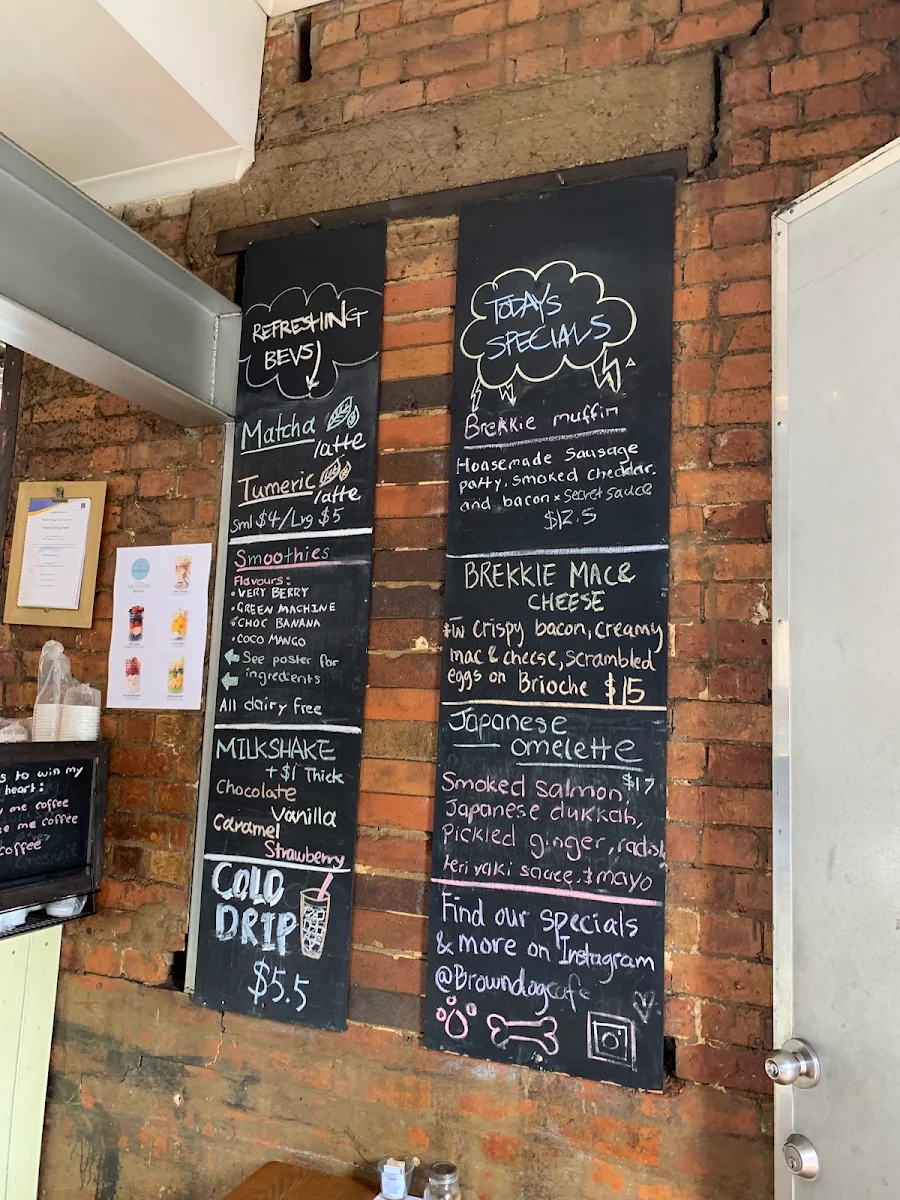 REFRESHING
BEVS
Matcha
latte
Tumeric
latte
Sml $4/Lrg $5
Smoothies
Flavours:
• VERY BERRY
• GREEN MACHINE
• CHOC BANANA
• COCO MANGO
See poster for
ingredients
All dairy free
MILKSHAKE
+ $1 Thick
Chocolate
Vanilla
Caramel
Strawberry
COLD
DRIP
$5.5
TODAYS
SPECIALS
Brekkie muffin
Housemade Sausage
patty, smoked cheddar.
and bacon × secret sauce
$12.5
BREKKIE MAC&
CHEESE
w crispy bacon, creamy
mac & cheese, scrambled
eggs on Brioche $15
Japanese
omelette
$17
Smoked salmon,
Japanese dukkah,
Pickled ginger, radish
teriyaki sauce, & mayo
Find our specials
& more on Instagram
@Browndogcafe
s to win my
heart:
me coffee
me coffee
coffee